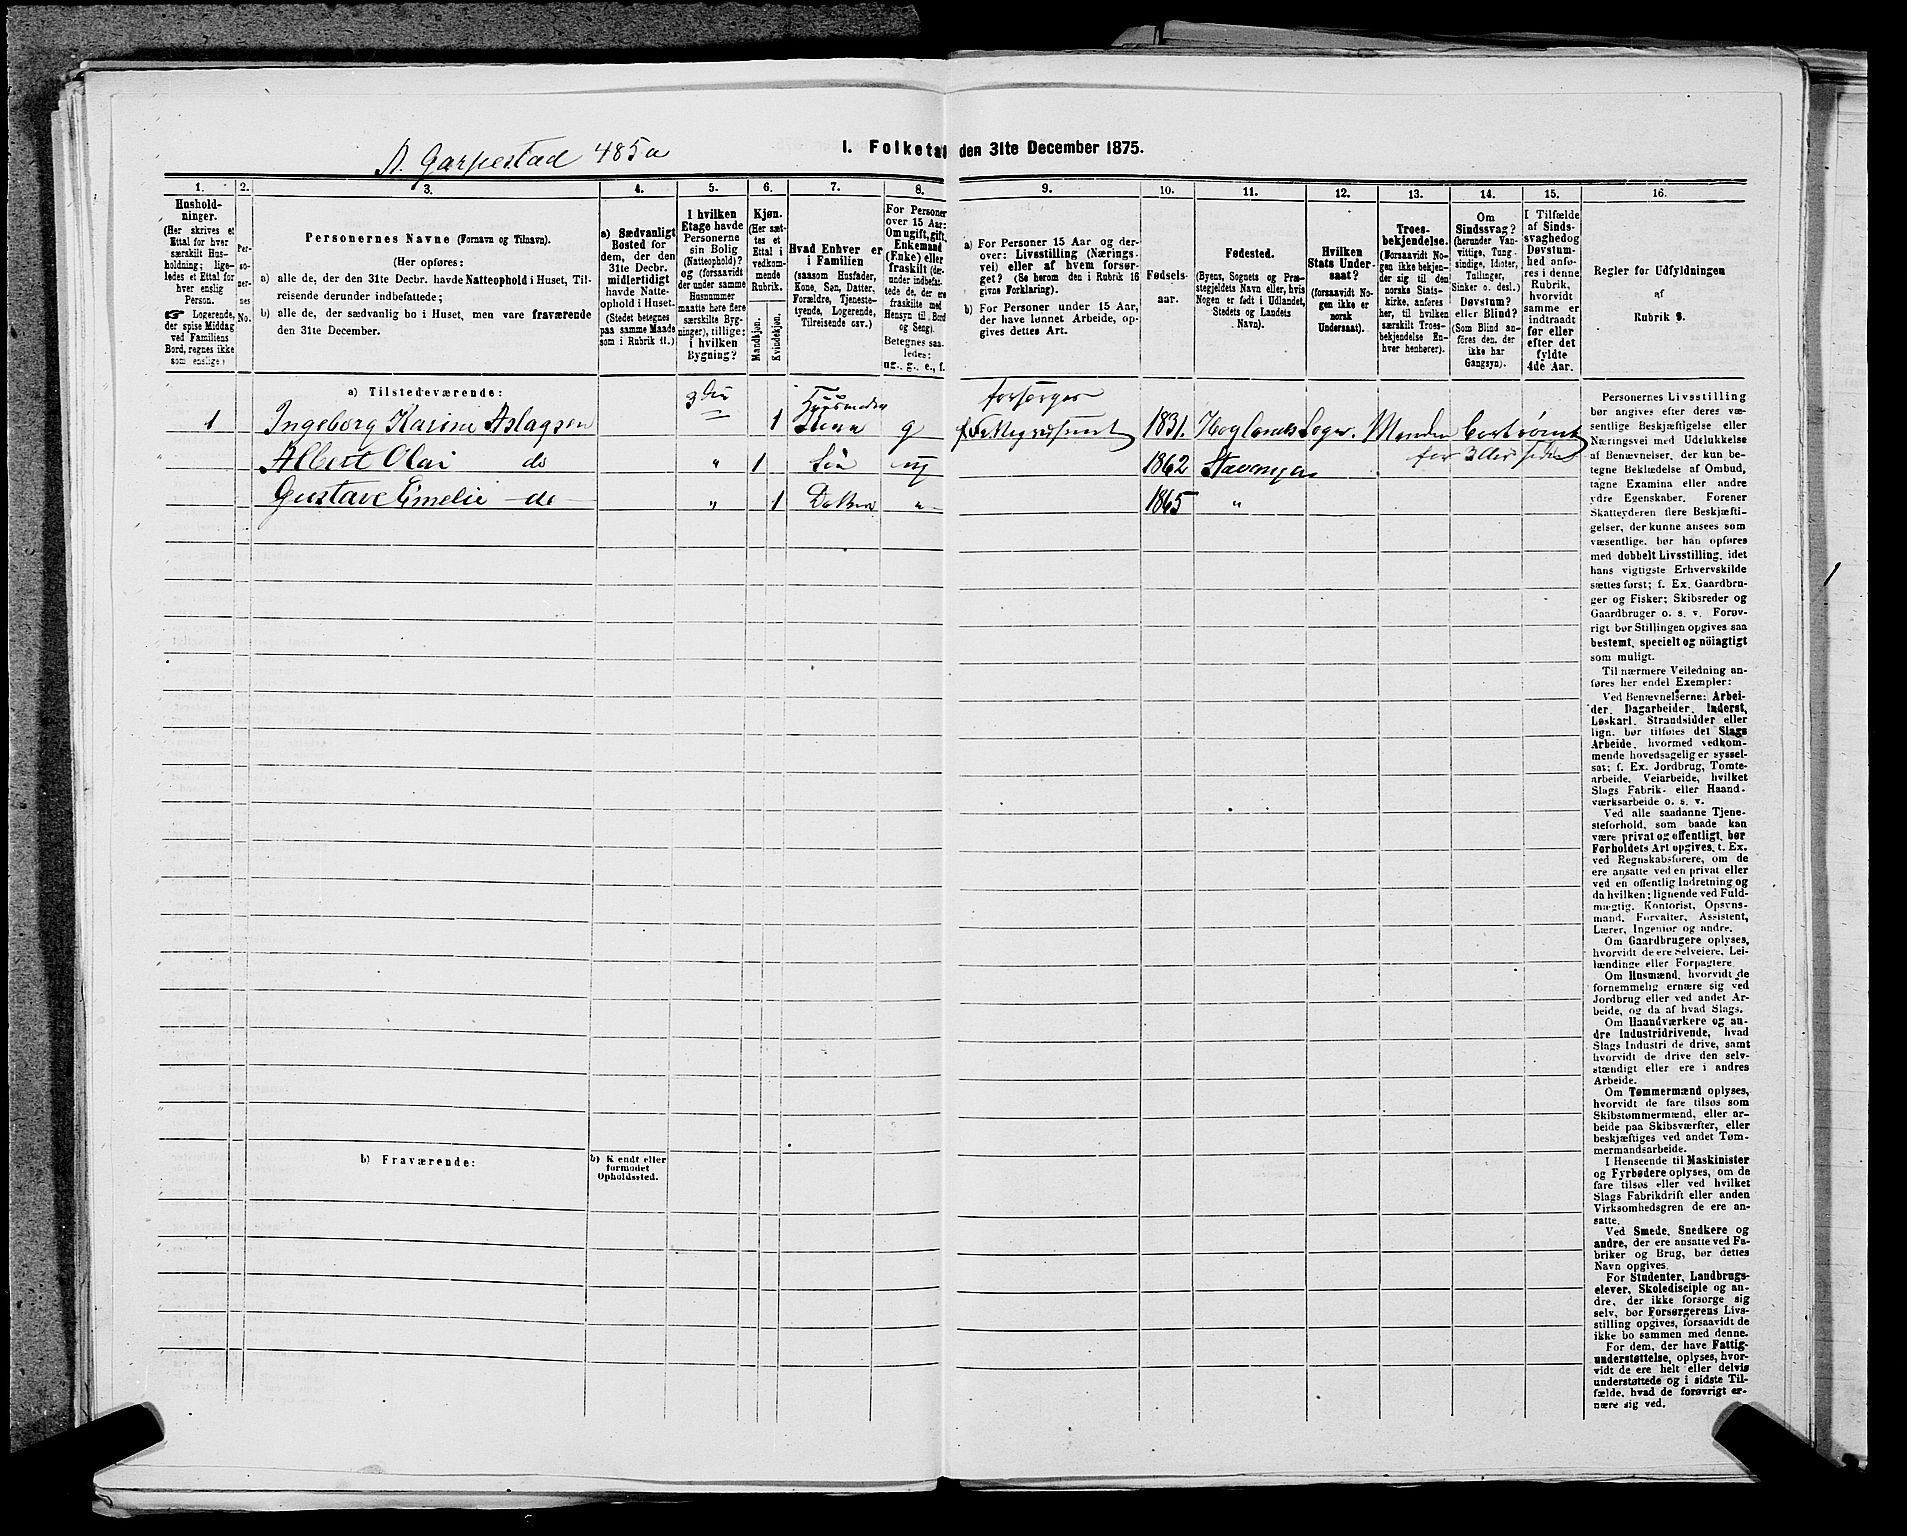 A. Garpestad 485a
I. Folketæ den 31te December 1875.
1.
2.
3.
4.
5.
6.
7.
8.
9.
10.
11.
12.
13.
14.
15.
16.
Hushold-
ninger.
(Her skrives et
Ettal for hver
særskilt Hus-
holdning; lige-
ledes et Ettal for
hver enslig
Person.
Logerende,
der spise Middag
ved Familiens
Bord, regnes ikke
som enslige)
Per-
so-
ner-
nes
No.
Personernes Navne (Fornavn og Tilnavn).
(Her opføres:
a) alle de, der den 31te Decbr. havde Natteophold i Huset, Til-
reisende derunder indbefattede;
b) alle de, der sædvanlig bo i Huset, men vare fraværende
den 31te December.
a) Sædvanligt
Bosted for
dem, der den
31te Decbr.
midlertidigt
havde Natte-
ophold i Huset.
(Stedet betegnes
paa samme Maade
som i Rubrik 11.)
I hvilken
Etage havde
Personerne
sin Bolig
(Natteophold)?
og (forsaavidt
der under samme
Husnummer
maatte høre flere
særskilte Byg-
ninger), tillige:
i hvilken
Bygning?
Kjøn.
(Her sæt-
tes et
Ettal i
vedkom-
mende
Rubrik.
Mandkjøn.
Kvindekjøn.
Hvad Enhver er
i Familien
(saasom Husfader,
Kone, Søn, Datter,
Forældre, Tjeneste-
tyende, Logerende,
Tilreisende osv.)
For Personer
over 15 Aar:
Om ugift, gift,
Enkemand
(Enke) eller
fraskilt (der-
under indbefat-
tede de, der ere
fraskilte med
Hensyn til Bord
og Seng).
Betegnes saa-
ledes:
ug., g., e., f.
a) For Personer 15 Aar og der-
over: Livsstilling (Nærings-
vei) eller af hvem forsør-
get? (Se herom den i Rubrik 16
givne Forklaring).
b) For Personer under 15 Aar,
der have lønnet Arbeide, op-
gives dettes Art.
Fødsels-
aar.
Fødested.
(Byens, Sognets og Præ-
stegjeldets Navn eller, hvis
Nogen er født i Udlandet,
Stedets og Landets
Navn).
Hvilken
Stats Under-
saat?
(forsaavidt No-
gen ikke er
norsk
Undersaat).
Troes-
bekjendelse.
(Forsaavidt No-
gen ikke bekjen-
der sig til den
norske Stats-
kirke, anføres
her, til hvilken
særskilt Troes-
bekjendelse En-
hver henhører).
Om
Sindssvag?
(herunder Van-
vittige, Tung-
sindige, Idioter,
Tullinger,
Sinker o. desl.)
Døvstum?
eller Blind?
(Som Blind an-
føres den, der
ikke har
Gangsyn).
I Tilfælde
af Sinds-
svaghed og
Døvstum-
hed anfø-
res i denne
Rubrik,
hvorvidt
samme er
indtraadt
før eller
efter det
fyldte
4de Aar.
Regler for Udfyldningen
af
Rubrik 9.
a) Tilstedeværende:
1 Ingeborg Karine Aslagsen 3die 1 Huusmoder g forsørges 1831. Høglands Sogn. Manden bortrømt
Albert Olai do " 1 Søn ug 1862 Stavanger for 3 Aar siden
Gustave Emelie do " 1 Datter " 1865 "
b) Fraværende:
b) Kjendt eller
formodet
Opholdssted.
Personernes Livsstilling
bør angives efter deres væ-
sentlige Beskjæftigelse eller
Næringsvei med Udelukkelse
af Benævnelser, der kun be-
tegne Beklædelse af Ombud,
tagne Examina eller andre
ydre Egenskaber. Forener
Skatteyderen flere Beskjæfti-
gelser, der kunne ansees som
væsentlige. bør han opføres
med dobbelt Livsstilling, idet
hans vigtigste Erhvervskilde
sættes først; f. Ex. Gaardbru-
ger og Fisker; Skibsreder og
Gaardbruger o. s. v. Forøv-
rigt bør Stillingen opgives saa
bestemt, specielt og nöiagtigt
som muligt.
Til nærmere Veiledning an-
føres her endel Exempler:
Ved Benævnelserne: Arbei-
der, Dagarbeider, Inderst,
Løskarl. Strandsidder eller
lign. bør tilføies det Slags
Arbeide, hvormed vedkom-
mende hovedsagelig er syssel-
sat; f. Ex. Jordbrug, Tomte-
arbeide, Veiarbeide, hvilket
Slags Fabrik- eller Haand-
værksarbeide o. s. v.
Ved alle saadanne Tjene-
steforhold, som baade kan
være privat og offentligt, bør
Forholdets Art opgives, f. Ex.
ved Regnskabsførere, om de
ere ansatte ved en privat eller
ved en offentlig Indretning og
da hvilken; lignende ved Fuld-
mægtig, Kontorist, Opsyns-
mand, Forvalter, Assistent,
Lærer, Ingeniør og andre.
Om Gaardbrugere oplyses,
hvorvidt de ere Selveiere, Lei-
lændinge eller Forpagtere.
Om Husmænd, hvorvidt de
fornemmelig ernære sig ved
Jordbrug eller ved andet Ar-
beide, og da af hvad Slags.
Om Haandværkere og an-
dre Industridrivende, hvad
Slags Industri de drive, samt
hvorvidt de drive den selv-
stændigt eller ere i andres
Arbeide.
Om Tømmermænd oplyses,
hvorvidt de fare tilsøs som
Skibstømmermænd, eller ar-
beide paa Skibsværfter, eller
beskjæftiges ved andet Tøm-
mermandsarbeide.
I Henseende til Maskinister
og Fyrbødere oplyses, om de
fare tilsøs eller ved hvilket
Slags Fabrikdrift eller anden
Virksomhedsgren de ere an-
satte.
Ved Smede, Snedkere og
andre, der ere ansatte ved Fa-
briker og Brug, bør dettes
Navn opgives.
For Studenter, Landbrugs-
elever, Skoledisciple og an-
dre, der ikke forsørge sig
selv, bør Forsørgerens Livs-
stilling opgives, forsaavidt de
ikke bo sammen med denne.
For dem, der have Fattig-
understøttelse, oplyses, hvor-
vidt de ere helt eller delvis
understøttede og i sidste Til-
fælde, hvad de forøvrigt er-
nære sig ved.